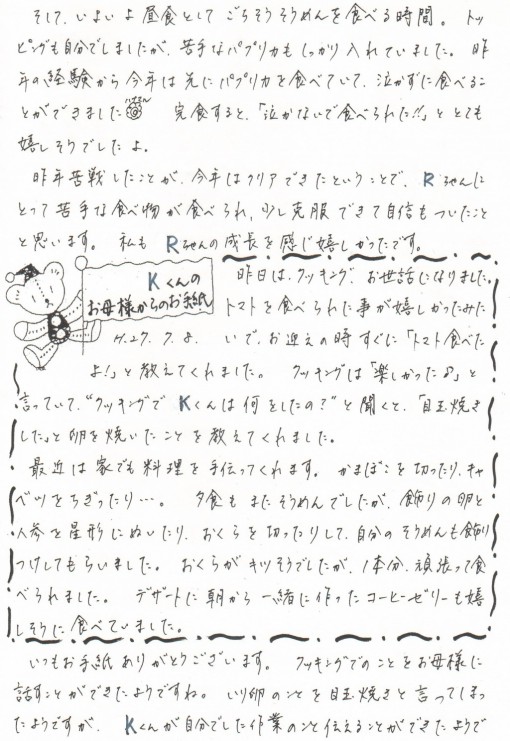 そして、いよいよ昼食としてごちそうそうめんを食べる時間。トッ
ピングも自分でしましたが、苦手なパプリカもしっかり入れていました。昨
年の経験から今年は先にパプリカを食べていて、泣かずに食べるこ
とができました 完食すると、「泣かないで食べられた!!」ととても
嬉しそうでしたよ。
昨年苦戦したことが、今年はクリアできたということで、Rちゃんに
とって苦手な食べ物が食べられ、少し克服できて自信もついたこと
と思います。私もRちゃんの成長を感じ嬉しかったです。
Kくんの
お母様からのお手紙
H.27.7.8.
昨日は、クッキング、お世話になりました。
トマトを食べられた事が嬉しかったみた
いで、お迎えの時すぐに「トマト食べた
よ!」と教えてくれました。クッキングは「楽しかった♪」と
言っていて、“クッキングでKくんは何をしたの?”と聞くと、「目玉焼き
した」と卵を焼いたことを教えてくれました。
最近は家でも料理を手伝ってくれます。かまぼこを切ったり、キャ
ベツをちぎったり…。夕食もまたそうめんでしたが、飾りの卵と
人参を星形にぬいたり、おくらを切ったりして、自分のそうめんも飾り
つけしてもらいました。おくらがキツそうでしたが、1本分、頑張って食
べられました。デザートに朝から一緒に作ったコーヒーゼリーも嬉
しそうに食べていました。
いつもお手紙ありがとうございます。クッキングでのことをお母様に
話すことができたようですね。いり卵のことを目玉焼きと言ってしまっ
たようですが、Kくんが自分でした作業のこと伝えることができたようで